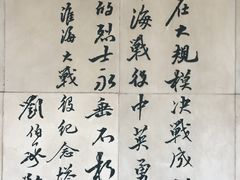 在大規模决戰
海戰役中英勇
的烈士永垂不朽
淮海大戰役纪念塔
劉伯承